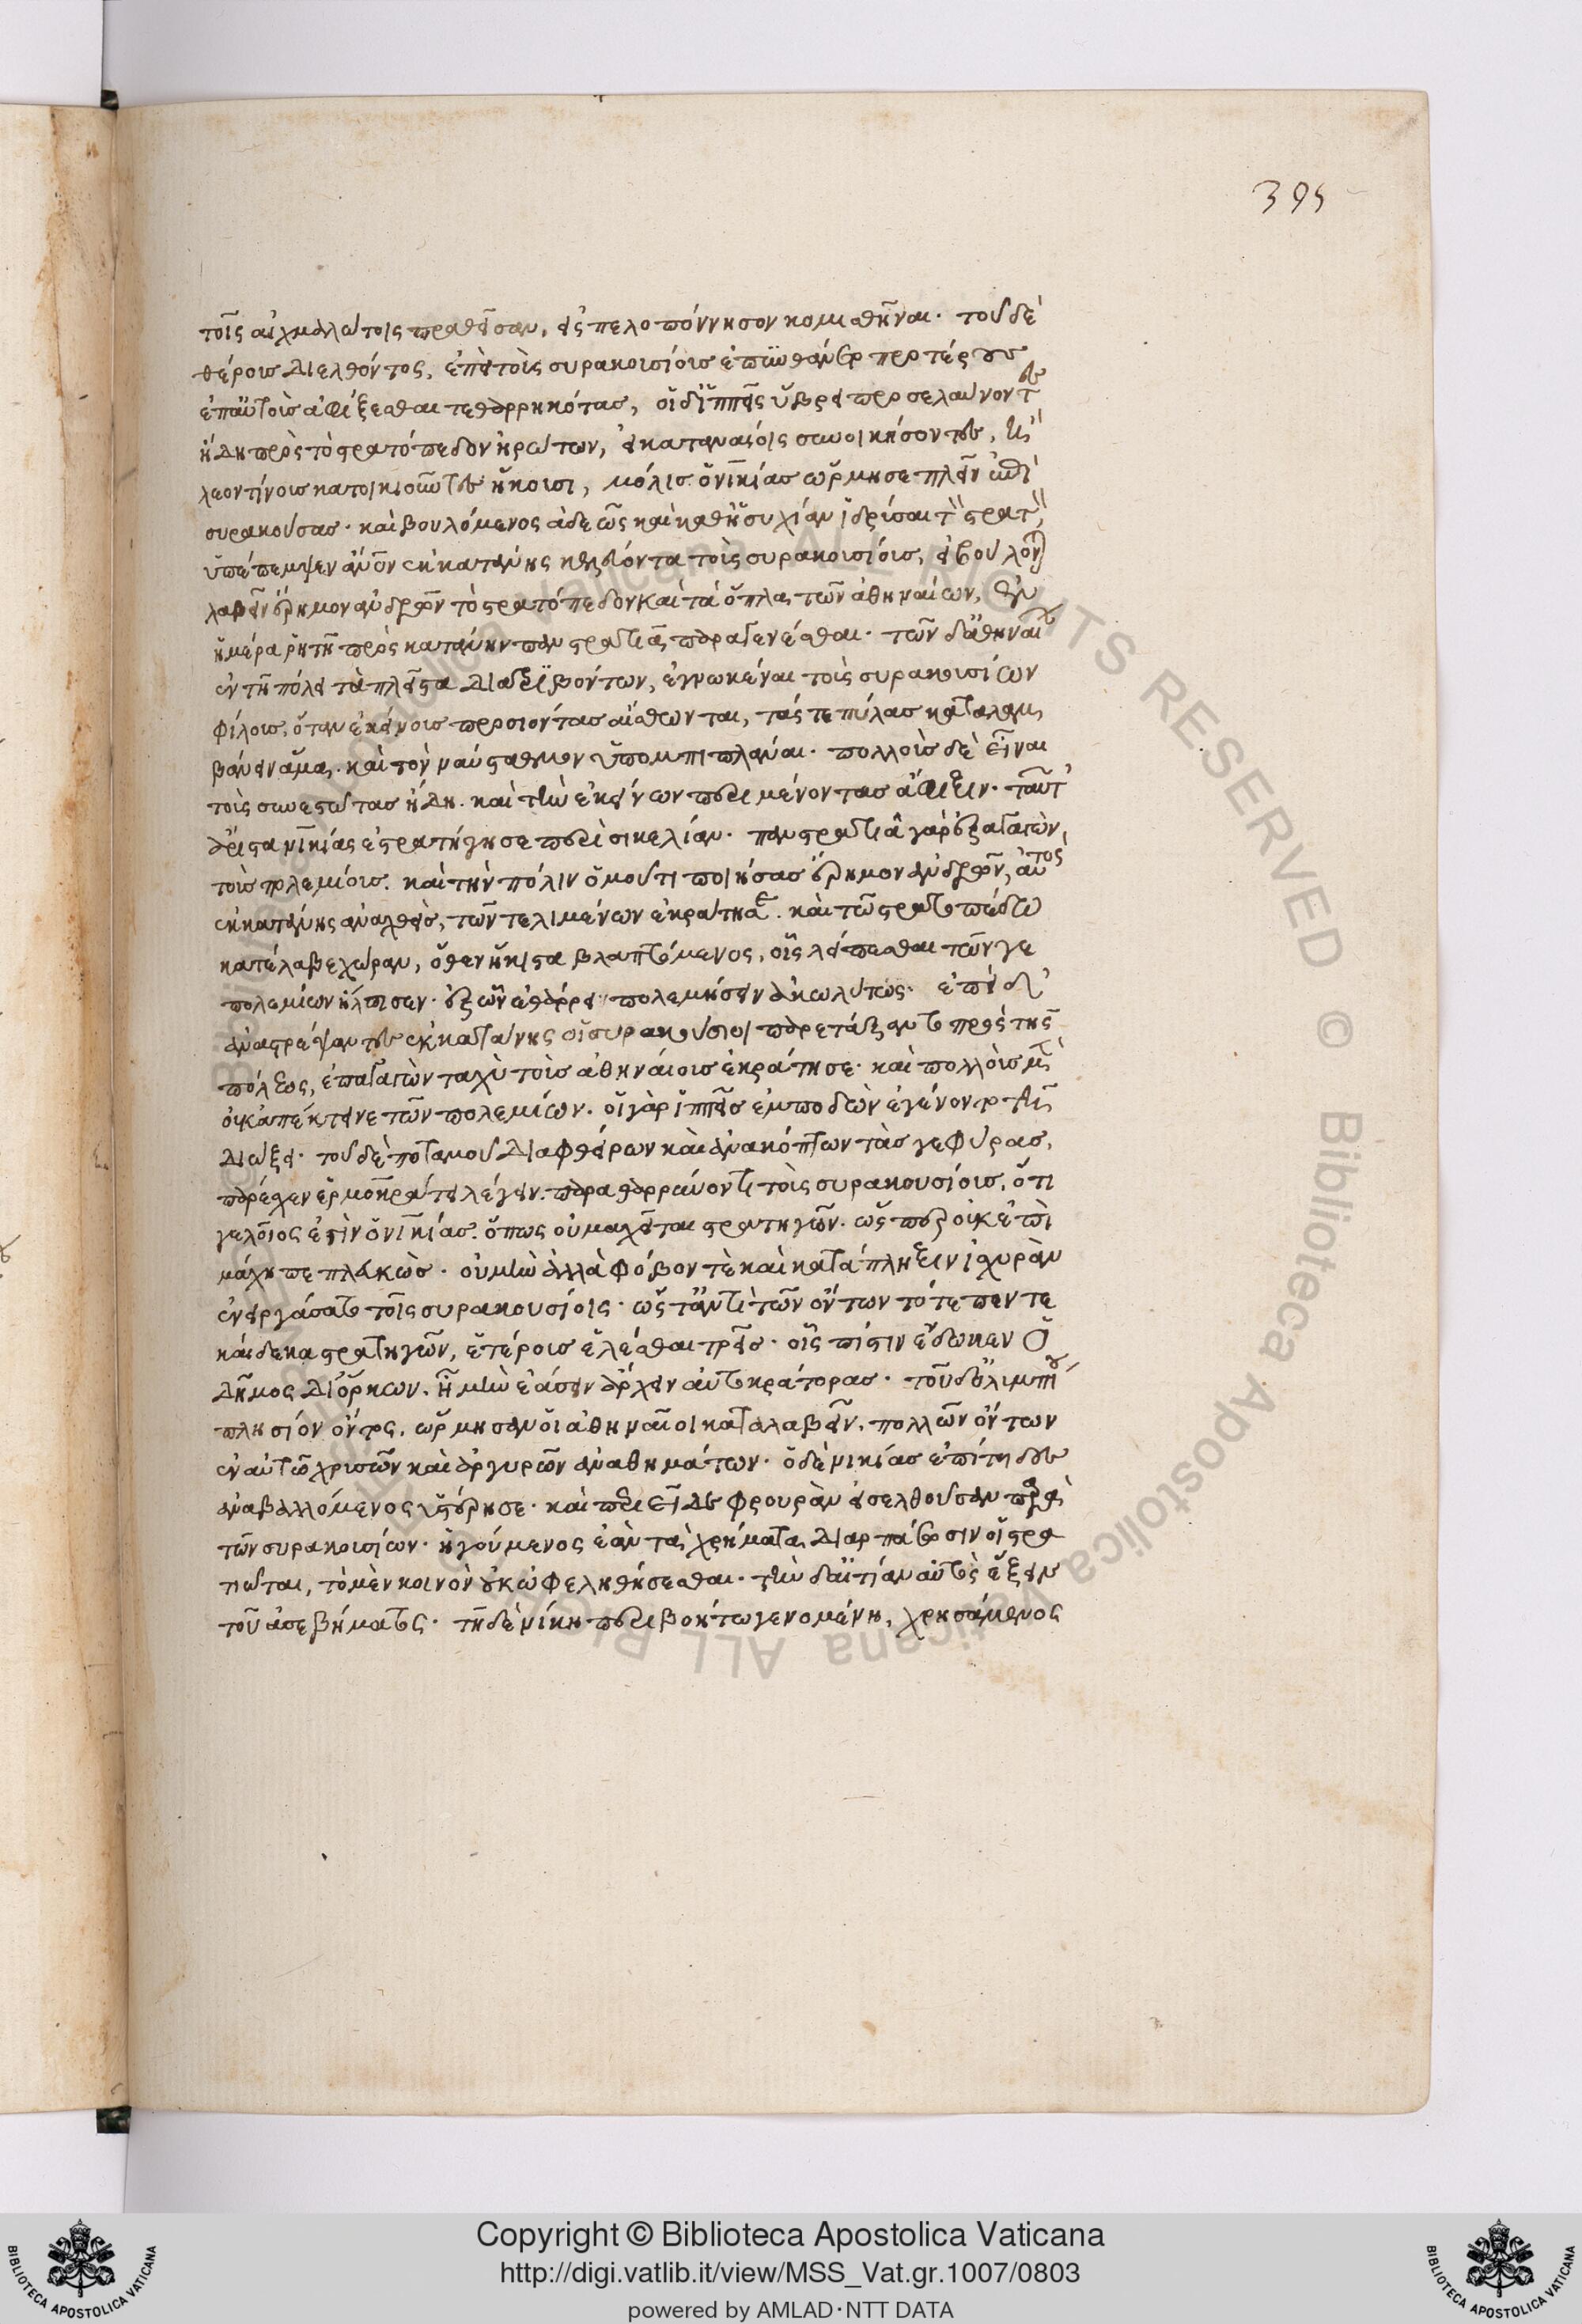 395
τοῖς αἰχμαλώτοις πραθεῖσαν, εἰς πελοπόννησον κομισθῆναι. τοῦ δὲ
θέρους διελθόντος, ἐπεὶ τοὺς συρακουσίους ἐπυνθάνετο προτέρους
ἐπ' αὐτοὺς ἀφίξεσθαι τεθαρρηκότας, οἱ δ' ἱππεῖς ὕβρει προσελαύνοντες
ἤδη πρὸς τὸ στρατόπεδον ἠρώτων, εἰ καταναίοις συνοικήσοντες, ἢ
λεοντίνους κατοικιοῦντες ἥκουσι, μόλις ὁ νικίας ὥρμησε πλεῖν ἐπὶ
συρακούσας. καὶ βουλόμενος ἀδεῶς καὶ καθ' ἡσυχίαν ἱδρῦσαι τὸν στρατόν,
ὑπέπεμψεν ἄνθρωπον ἐκ κατάνης κελεύοντα τοὺς συρακουσίους, εἰ βούλονται
λαβεῖν ἔρημον ἀνδρῶν τὸ στρατόπεδον καὶ τὰ ὅπλα τῶν ἀθηναίων, ἐν
ἡμέρα ῥητῇ πρὸς κατάνην πανστρατιᾷ παραγενέσθαι. τῶν δ' ἀθηναίων
ἐν τῇ πόλει τὰ πλεῖστα διατριβόντων, ἐγνωκέναι τοὺς συρακουσίων
φίλους, ὅταν ἐκείνους προσιόντας αἴσθωνται, τάς τε πύλας καταλαμ
βάνειν ἅμα. καὶ τὸν ναύσταθμον ὑποπιμπράναι. πολλοὺς δὲ εἶναι
τοὺς συνεστῶτας ἤδη. καὶ τὴν ἐκείνων περιμένοντας ἄφιξιν. τοῦτ'
ἄριστα νικίας ἐστρατήγησε περὶ σικελίαν. πανστρατιᾷ γὰρ ἐξαγαγὼν
τοὺς πολεμίους. καὶ τὴν πόλιν ὁμοῦ τι ποιήσας ἔρημον ἀνδρῶν, αὐτὸς
ἐκ κατάνης ἀναχθεὶς, τῶν τε λιμένων ἐκράτησε. καὶ τῷ στρατοπέδῳ
κατέλαβε χώραν, ὅθεν ἥκιστα βλαπτόμενος, οἷς λείπεσθαι τῶν γε
πολεμίων ἤλπισεν. ἐξ ὧν ἐθάρρει πολεμήσειν ἀκωλύτως. ἐπεὶ δ'
ἀναστρέψαντες ἐκ κατάνης οἱ συρακούσιοι παρετάξαντο πρὸς τῆς
πόλεως, ἐπαγαγὼν ταχὺ τοὺς ἀθηναίους ἐκράτησε. καὶ πολλοὺς μὲν
οὐκ ἀπέκτεινε τῶν πολεμίων. οἱ γὰρ ἱππεῖς ἐμποδὼν ἐγένοντο τῇ
διώξει. τοῦ δὲ ποταμοῦ διαφθείρων καὶ ἀνακόπτων τὰς γεφύρας,
παρέσχεν ἑρμοκράτει λέγειν. παραθαρρύνοντι τοὺς συρακουσίους, ὅτι
γελοῖος ἐστὶν ὁ νικίας. ὅπως οὐ μαχεῖται στρατηγῶν. ὥσπερ οὐκ ἐπὶ
μάχη πεπλευκὼς. οὐ μὴν ἀλλὰ φόβον τὲ καὶ κατάπληξιν ἰσχυρὰν
ἐνειργάσατο τοῖς συρακουσίοις. ὥστ' ἀντὶ τῶν ὄντων τότε πεντε
καίδεκα στρατηγῶν, ἑτέρους ἑλέσθαι τρεῖς. οἷς πίστιν ἔδωκεν ὁ
δῆμος δι' ὅρκων. ἦ μὴν ἐάσειν ἄρχειν αὐτοκράτορας. τοῦ δ' ὀλυμπίου
πλησίον ὄντος. ὥρμησαν οἱ ἀθηναῖοι καταλαβεῖν. πολλῶν ὄντων
ἐν αὐτῷ χρυσῶν καὶ ἀργυρῶν ἀναθημάτων. ὁ δὲ νικίας ἐπίτηδες
ἀναβαλλόμενος ὑστέρησε. καὶ περιεῖδε φρουρὰν εἰσελθοῦσαν παρὰ
τῶν συρακουσίων. ἡγούμενος ἐὰν τὰ χρήματα διαρπάσωσιν οἱ στρα
τιῶται, τὸ μὲν κοινὸν οὐκ ὠφεληθήσεσθαι. τὴν δ' αἰτίαν αὐτὸς ἕξειν
τοῦ ἀσεβήματος. τῇ δὲ νίκη περιβοήτω γενομένη, χρησάμενος
Copyright © Biblioteca Apostolica Vaticana
http://digi.vatlib.it/view/MSS_Vat.gr.1007/0803
powered by AMLAD·NTT DATA